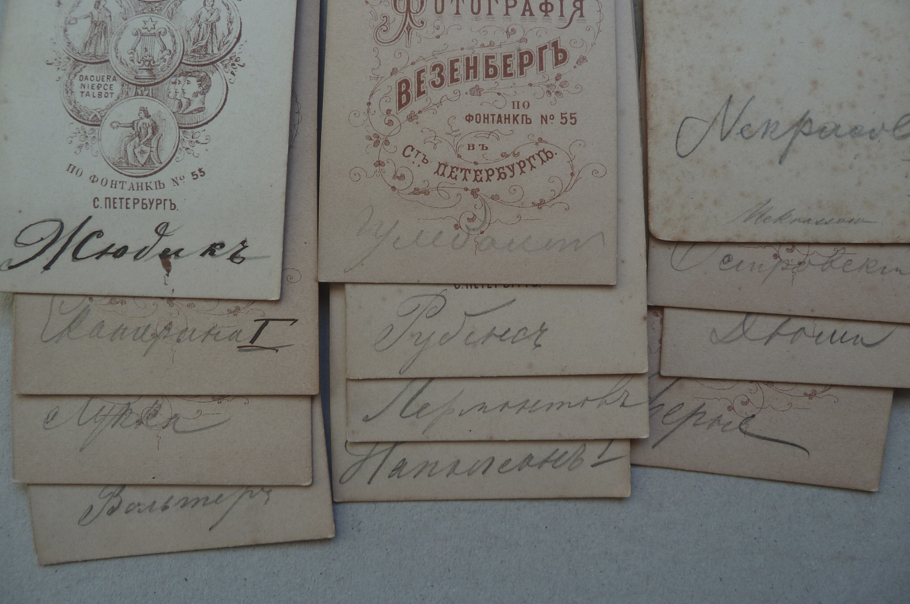 DAGUERR
NIEPCE
TALBOT
ПО ФОНТАНКѢ № 55
С. ПЕТЕРБУРГЪ.
Жюдикъ
Екатерина I
Лукка
Вольтеръ
ФОТОГРАФІЯ
ВЕЗЕНБЕРГЪ
ПО
ФОНТАНКѢ № 55
ВЪ
Стъ ПЕТЕРБУРГѢ.
Рубенсъ
Лермонтовъ
Наполеонъ I
Некрасов
Некрасов
Островский